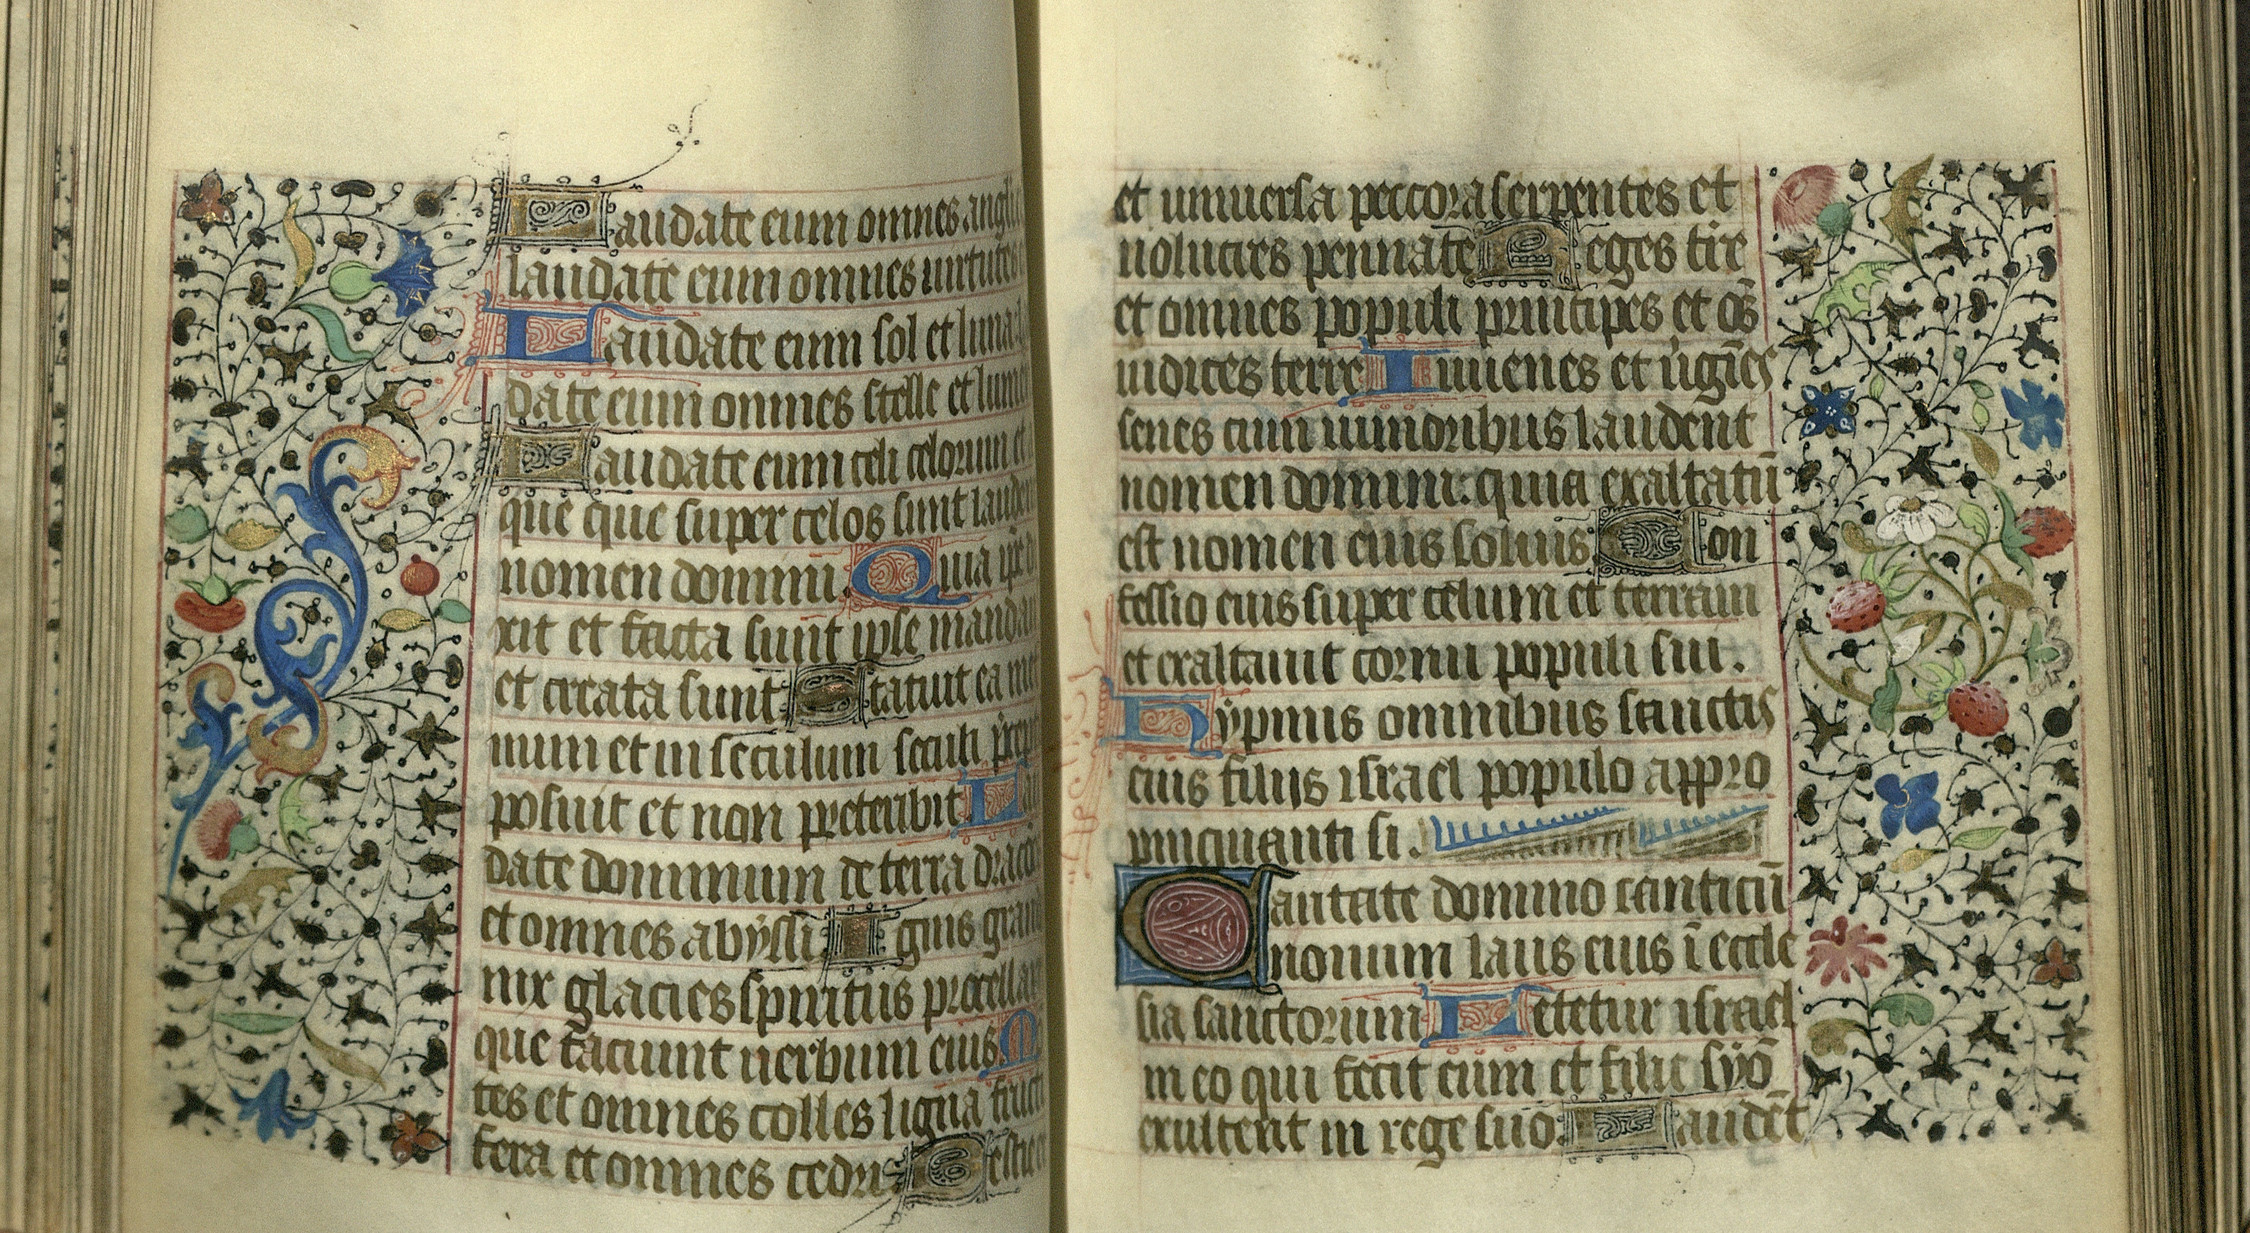 Laudate eum omnes angli
laudate eum omnes uirtutes
Laudate eum sol et luna
date eum omnes stelle et lumen
Laudate eum celi celorum et
que que super celos sunt lauden
nomen domini. Quia ip̄e
xit et facta sunt ipse manda
et creata sunt Statuit ea in
num et in seculum seculi p̄cep
posuit et non preteribit. L
date dominum de terra dracon
et omnes abyssi Ignis grand
nix glacies spiritus procellar
que faciunt uerbum eius. M
tes et omnes colles ligna fructi
fera et omnes cedri Bestie
et uniuersa peccora serpentes et
uolucres pennate Reges tr̄e
et omnes populi principes et oēs
iudices terre Iuuenes et uḡines
senes cum iunioribus laudent
nomen domini: quia exaltatū
est nomen eius solius. Con
fessio eius super celum et terram
et exaltauit cornu populi sui.
Hypnus omnibus sanctis
eius filijs israel populo appro
pinquanti si.
Cantate domino canticū
nouum laus eius ī eccle
sia sanctorum Letetur israel
in eo qui fecit eum et filie syō
exultent in rege suo. Laudēt